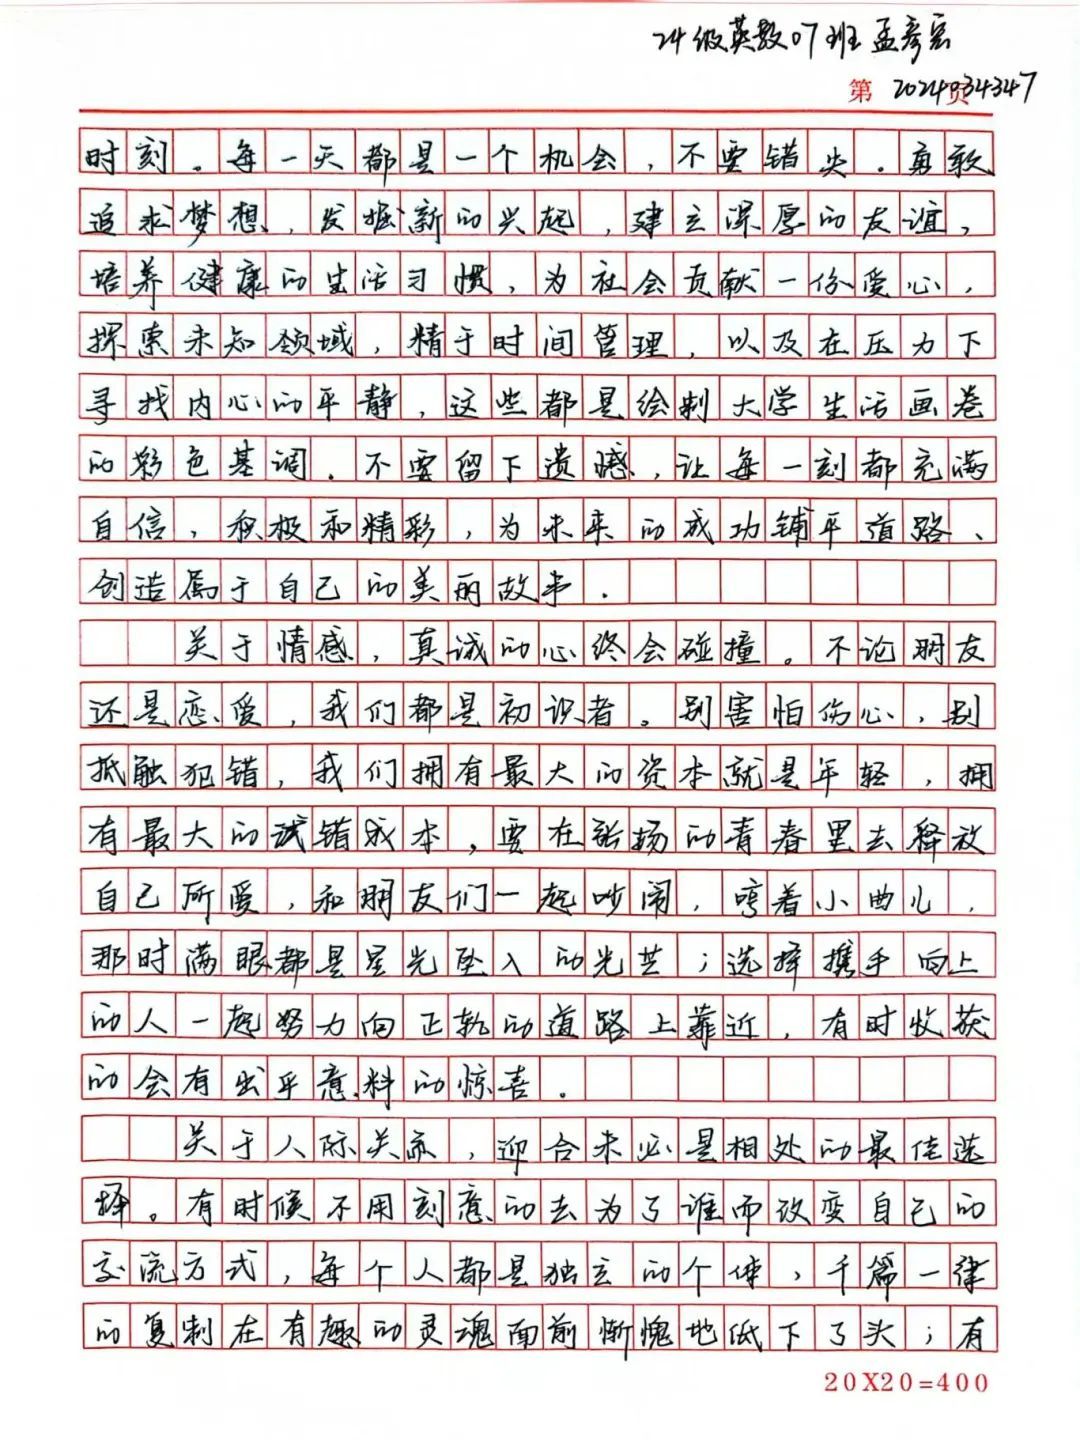 24级英数07班孟彦宏
第 2024034347 页
时刻。每一天都是一个机会，不要错失。勇敢
追求梦想，发掘新的兴起，建立深厚的友谊，
培养健康的生活习惯，为社会贡献一份爱心，
探索未知领域，精于时间管理，以及在压力下
寻找内心的平静，这些都是绘制大学生活画卷
的彩色基调。不要留下遗憾，让每一刻都充满
自信、积极和精彩，为未来的成功铺平道路、
创造属于自己的美丽故事．
关于情感，真诚的心终会碰撞。不论朋友
还是恋爱，我们都是初识者。别害怕伤心，别
抵触犯错，我们拥有最大的资本就是年轻，拥
有最大的试错成本，要在张扬的青春里去释放
自己所爱，和朋友们一起吵闹，弯着小曲儿，
那时满眼都是星光坠入的光芒；选择携手向上
的人一起努力向正轨的道路上靠近，有时收获
的会有出乎意料的惊喜。
关于人际关系，迎合未必是相处的最佳选
择。有时候不用刻意的去为了谁而改变自己的
交流方式，每个人都是独立的个体，千篇一律
的复制在有趣的灵魂面前惭愧地低下了头；有
20X20=400